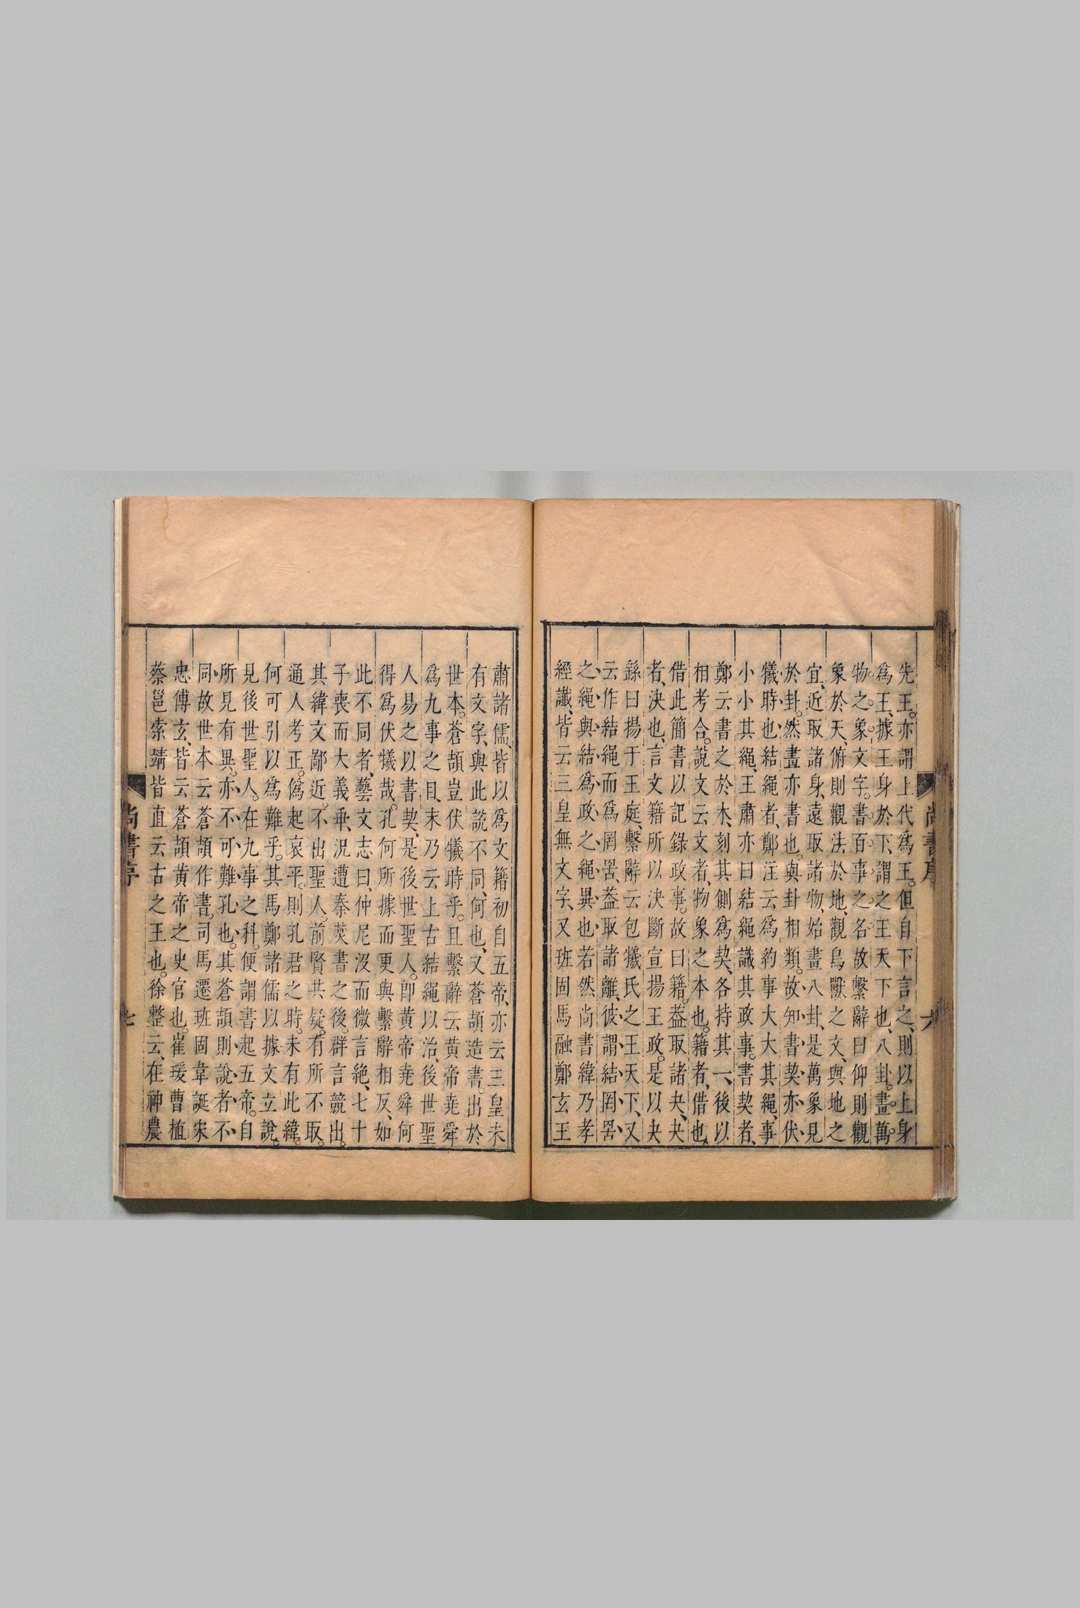 先王亦謂上代爲王但自下言之則以上身
爲王據王身於下謂之王天下也八卦畫萬
物之象文字書百事之名故繫辭曰仰則觀
象於天俯則觀法於地觀鳥獸之文與地之
宜近取諸身遠取諸物始畫八卦是萬象見
於卦然畫亦書也與卦相類故知書契亦伏
犧時也結繩者鄭注云爲約事大大其繩事
小小其繩王肅亦曰結繩識其政事書契者
鄭云書之於木刻其側爲契各持其一後以
相考合說文云文者物象之本也籍者借也
借此簡書以記錄政事故曰籍葢取諸夬夬
者決也言文籍所以決斷宣揚王政是以夬
繇曰揚于王庭繫辭云包犧氏之王天下又
云作結繩而爲罔罟葢取諸離彼謂結罔罟
之繩與結爲政之繩異也若然尚書緯乃孝
經讖皆云三皇無文字又班固馬融鄭玄王
尚書序
六
肅諸儒皆以爲文籍初自五帝亦云三皇未
有文字與此說不同何也又蒼頡造書出於
世本蒼頡豈伏犧時乎且繫辭云黃帝堯舜
爲九事之目末乃云上古結繩以治後世聖
人易之以書契是後世聖人即黃帝堯舜何
得爲伏犧哉孔何所據而更與繫辭相反如
此不同者藝文志曰仲尼沒而微言絕七十
子喪而大義乖況遭秦焚書之後群言競出
其緯文鄙近不出聖人前賢共疑有所不取
通人考正僞起哀平則孔君之時未有此緯
何可引以爲難乎其馬鄭諸儒以據文立說
見後世聖人在九事之科便謂書起五帝自
所見有異亦不可難孔也其蒼頡則說者不
同故世本云蒼頡作書司馬遷班固韋誕宋
忠傅玄皆云蒼頡黃帝之史官也崔瑗曹植
蔡邕索靖皆直云古之王也徐整云在神農
尚書序
七